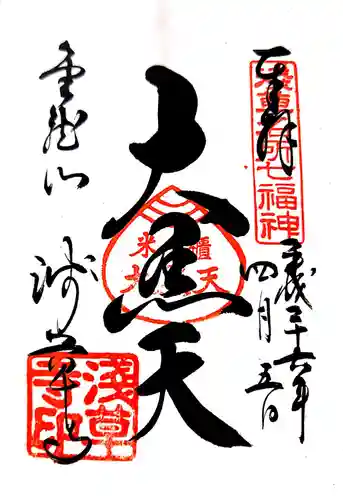 奉拝
淺草名所七福神
平成二十六年
四月五日
大黒天
米櫃
大黒天
金龍山
浅草寺
淺草寺印